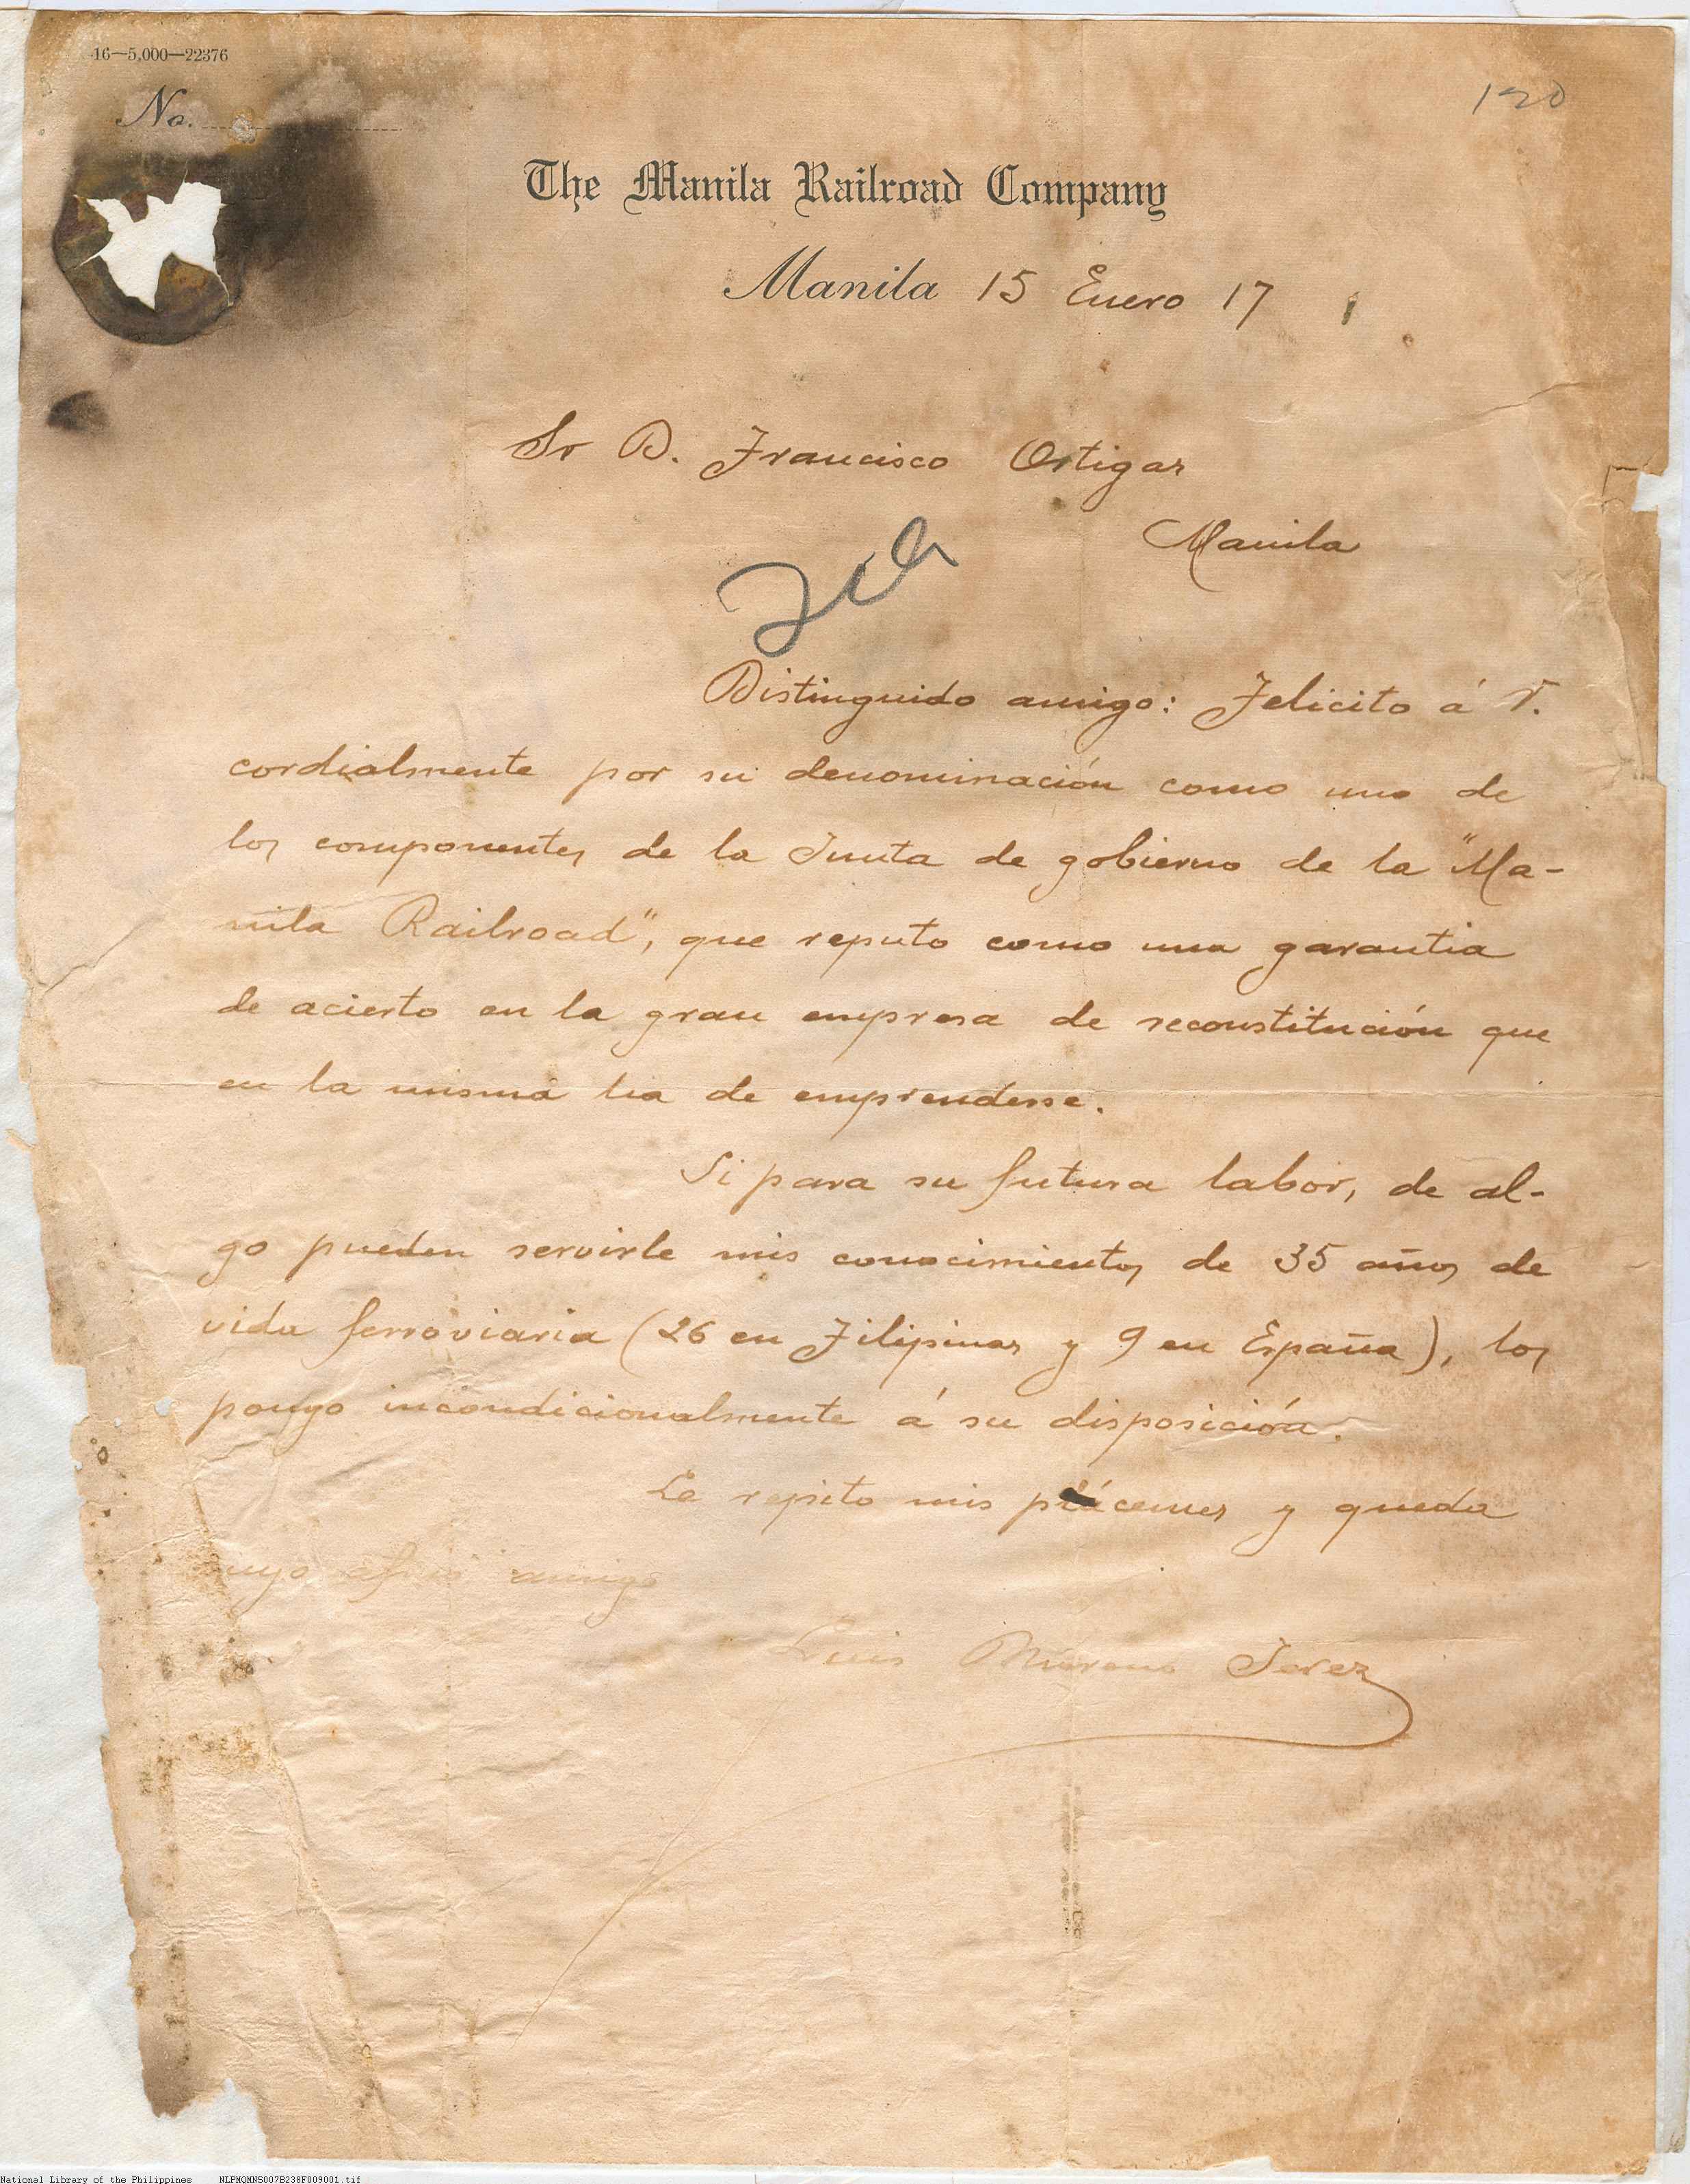 16—5,000—22376
No.
120
The Manila Railroad Company
Manila 15 Enero 17
Sr D. Francisco Ortigas
Manila
Distinguido amigo: Felicito á V.
cordialmente por su denominación como uno de
los componentes de la Junta de gobierno de la "Ma-
nila Railroad", que reputo como una garantia
de acierto en la gran empresa de reconstitución que
en la misma ha de emprenderse.
Si para su futura labor, de al-
go pueden servirle mis conocimientos de 35 años de
vida ferroviaria (26 en Filipinas y 9 en España), los
pongo incondicionalmente á su disposición.
Le repito mis plácemes y queda
suyo afmo amigo
Luis Moreno Jerez
National Library of the Philippines NLPMQMNS007B238F009001.tif